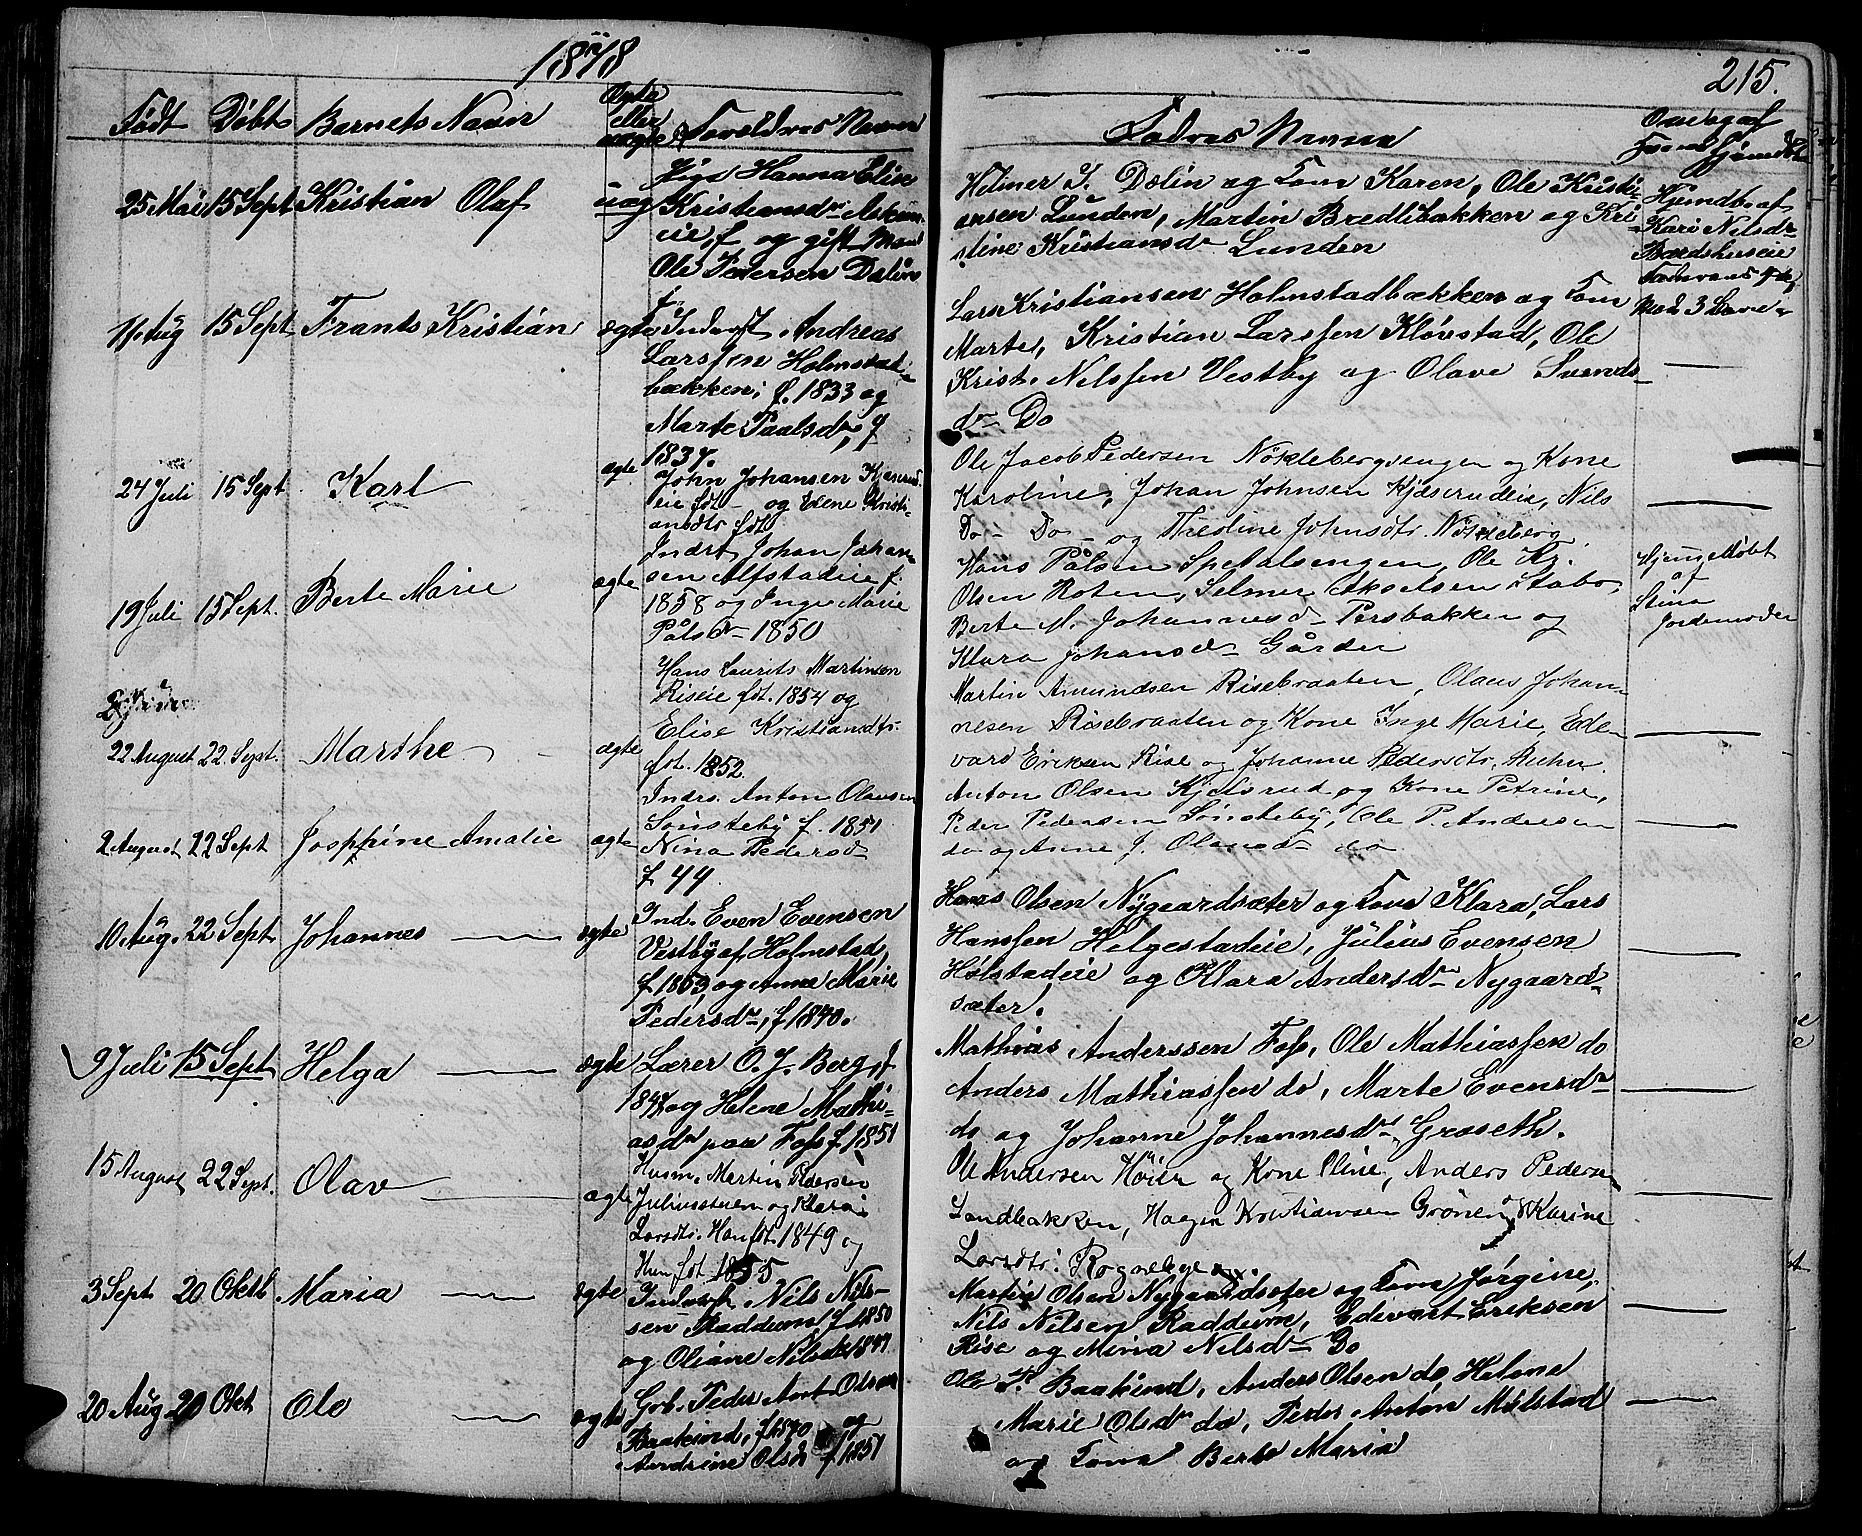 1878
215.
Født Døbt Barnets Navn Ægte eller uægte Foreldres Navne
Fadres Navne
25 Mai 15 Sept Kristian Olaf uæg Pige Hanna Elise
Kristiansdr
f. og gift Mand
Ole Pedersen Dælin
Helmer J. Dælin og Kona Karen, Ole Kristi-
ansen Lunden, Martin Bredlibækken og Kri-
stine Kristiansdr Lunden
Hjemdb. af
Kari Nilsdr
11 Aug 15 Sept Frants Kristian ægte Inderst Andreas
Larssen Holmstad-
bækken, f. 1833 og
Marte Paalsdr, f
1837.
Lars Kristiansen Holmstadbækken og Kona
Marte, Kristian Larssen Kløvstad, Ole
Krist. Nilssen Vestby og Olave Svends-
dr Do
24 Juli 15 Sept Karl ægte John Johansen
eie fdt - og Lene Kristi-
ansdtr fdt
Ole Jacob Pedersen Nøkleberg og Kone
Karoline, Johan Johnsen Kjøserudeie, Nils
Do - Do - og Thedine Johnsdtr. Nøkleberg
19 Juli 15 Sept. Berte Marie ægte Indrt Johan Johan-
sen Alfstadeie f.
1858 og Inge Marie
Pålsdr 1850
Hans Pålsen Spetalsengen, Ole Kr.
Olsen Roten, Selmer Akselsen Stabo,
Berte M. Johannesd Persbakken og
Klara Johansd Gårder
Hjemmedøbt
af
Stina
Jordemoder
22 August 22 Sept. Marthe ægte Hans Laurits Martinsen
Riseie fdt. 1854 og
Elise Kristiansdtr.
fdt. 1852.
Martin Amundsen Risebraaten, Olaus Johan-
nesen Risebraaten og Kone Inge Marie, Ede-
vard Eriksen Rise og Johanne Pedersdtr.
2 August 22 Sept Josphine Amalie ægte Indrs. Anton Olausen
Sønsteby f. 1851
Nina Pedersd
f 44.
Anton Olsen Kjølsrud og Kone Petrine,
Peder Pedersen Sønsteby, Ole P. Andersen
do og Anne J. Olausd do
10 Aug. 22 Sept Johannes ægte Ind. Even Evensen
Vestby af Holmstad,
f. 1853, og Anne Marie
Pedersdr, f 1840.
Hans Olsen Nygaardsæter og Kona Klara, Lars
Hanssen Helgestadeie, Julius Evensen
Hølstadeie og Klara Andersdr Nygaard-
sæter.
9 Juli 15 Sept Helga ægte Lærer O. J. Berg, f.
1847 og Helene Mathi-
asdr paa Foss f. 1851
Mathias Anderssen Foss, Ole Mathiassen do
Anders Mathiassen do, Marte Evensdr
do og Johanne Johannesdr Graseth.
15 August 22 Sept. Olav ægte Husm. Martin Pedersen
Juliusstuen og Klara
Larsdtr. Han fdt. 1849 og
Hun fdt 1855
Ole Andersen Høier og Kone Oline, Anders Pedersen
Sandbakken, Hagen Kristiansen Grønen og Karine
Larsdtr.
3 Sept 20 Oktb Maria ægte Inderst Nils Nils-
sen Raddum f 1850
og Oliane Nilsdr 1849
Martin Olsen Nygaardsæter og Kona Jørgine,
Nils Nilsen Raddum, Edevart Eriksen
Rise og Mina Nilsdr Do
20 Aug 20 Okt Ole ægte Grb. Peder Ant. Olsen
Baakind, f. 1840 og
Andrine Olsdr f. 1851
Ole P. Baakind, Anders Olsen do, Helene
Marie Olsdr do, Peder Anton Milstad
og Kona Berte Maria